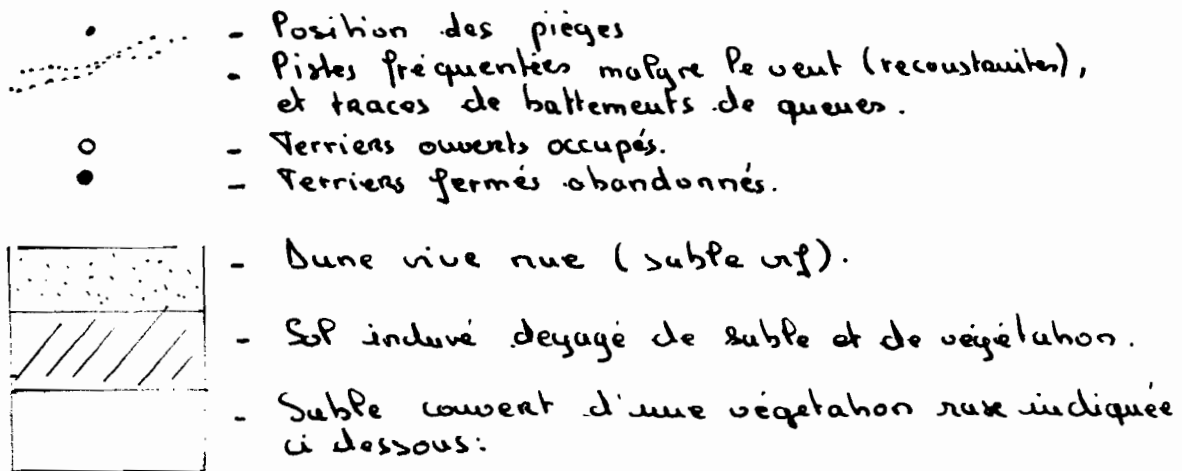 - Position des pièges
- Pistes fréquentées malgre le vent (reconstruites),
et traces de battements de queues.
- Terriers ouverts occupés.
- Terriers fermés abandonnés.
- Dune vive nue (sable vif).
- Sol induré dégagé de sable et de végétation.
- Sable couvert d'une végetation rase indiquée
ci dessous: